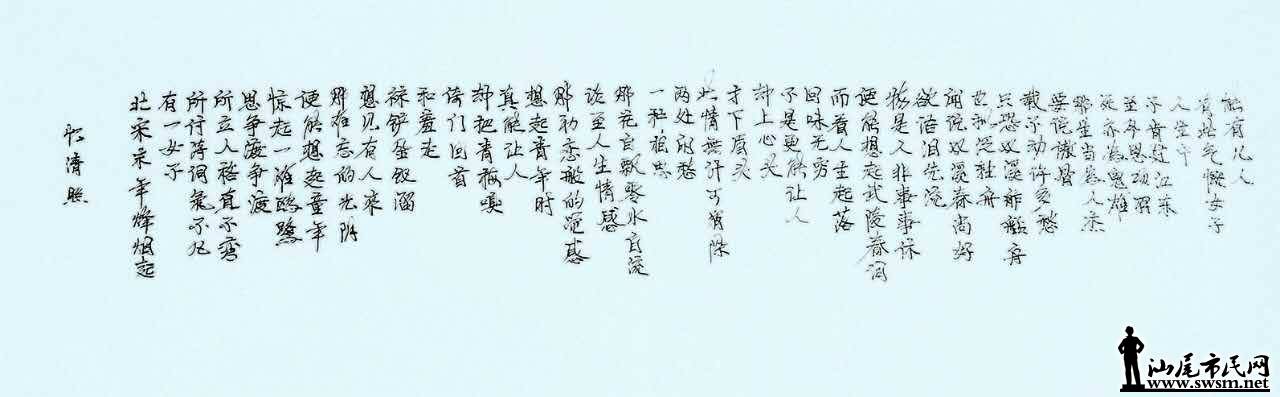 清照
北宋末年烽烟起
有一女子
所作诗词气不凡
所立人格直不弯
思争渡争渡
惊起一滩鸥鹭
便能想起童年
那难忘的光阴
想见有人来
袜铲金钗溜
和羞走
倚门回首
却把青梅嗅
真能让人
想起青年时
那初恋般的感
论至人生情感
那花自飘零水自流
一种相思
两处闲愁
此情無计可消除
才下眉头
却上心头
于是更能让人
回味无穷
而看人生起落
便能想起武陵春词
物是人非事事休
欲语泪先流
闻说双溪春尚好
也拟泛轻舟
只恐双溪舴艋舟
载不动许多愁
要说傲骨
那生当为人杰
死亦为鬼雄
至今思项羽
不肯过江东
人生中
有此气慨女子
能有几人
汕尾市民网
www.swsm.net